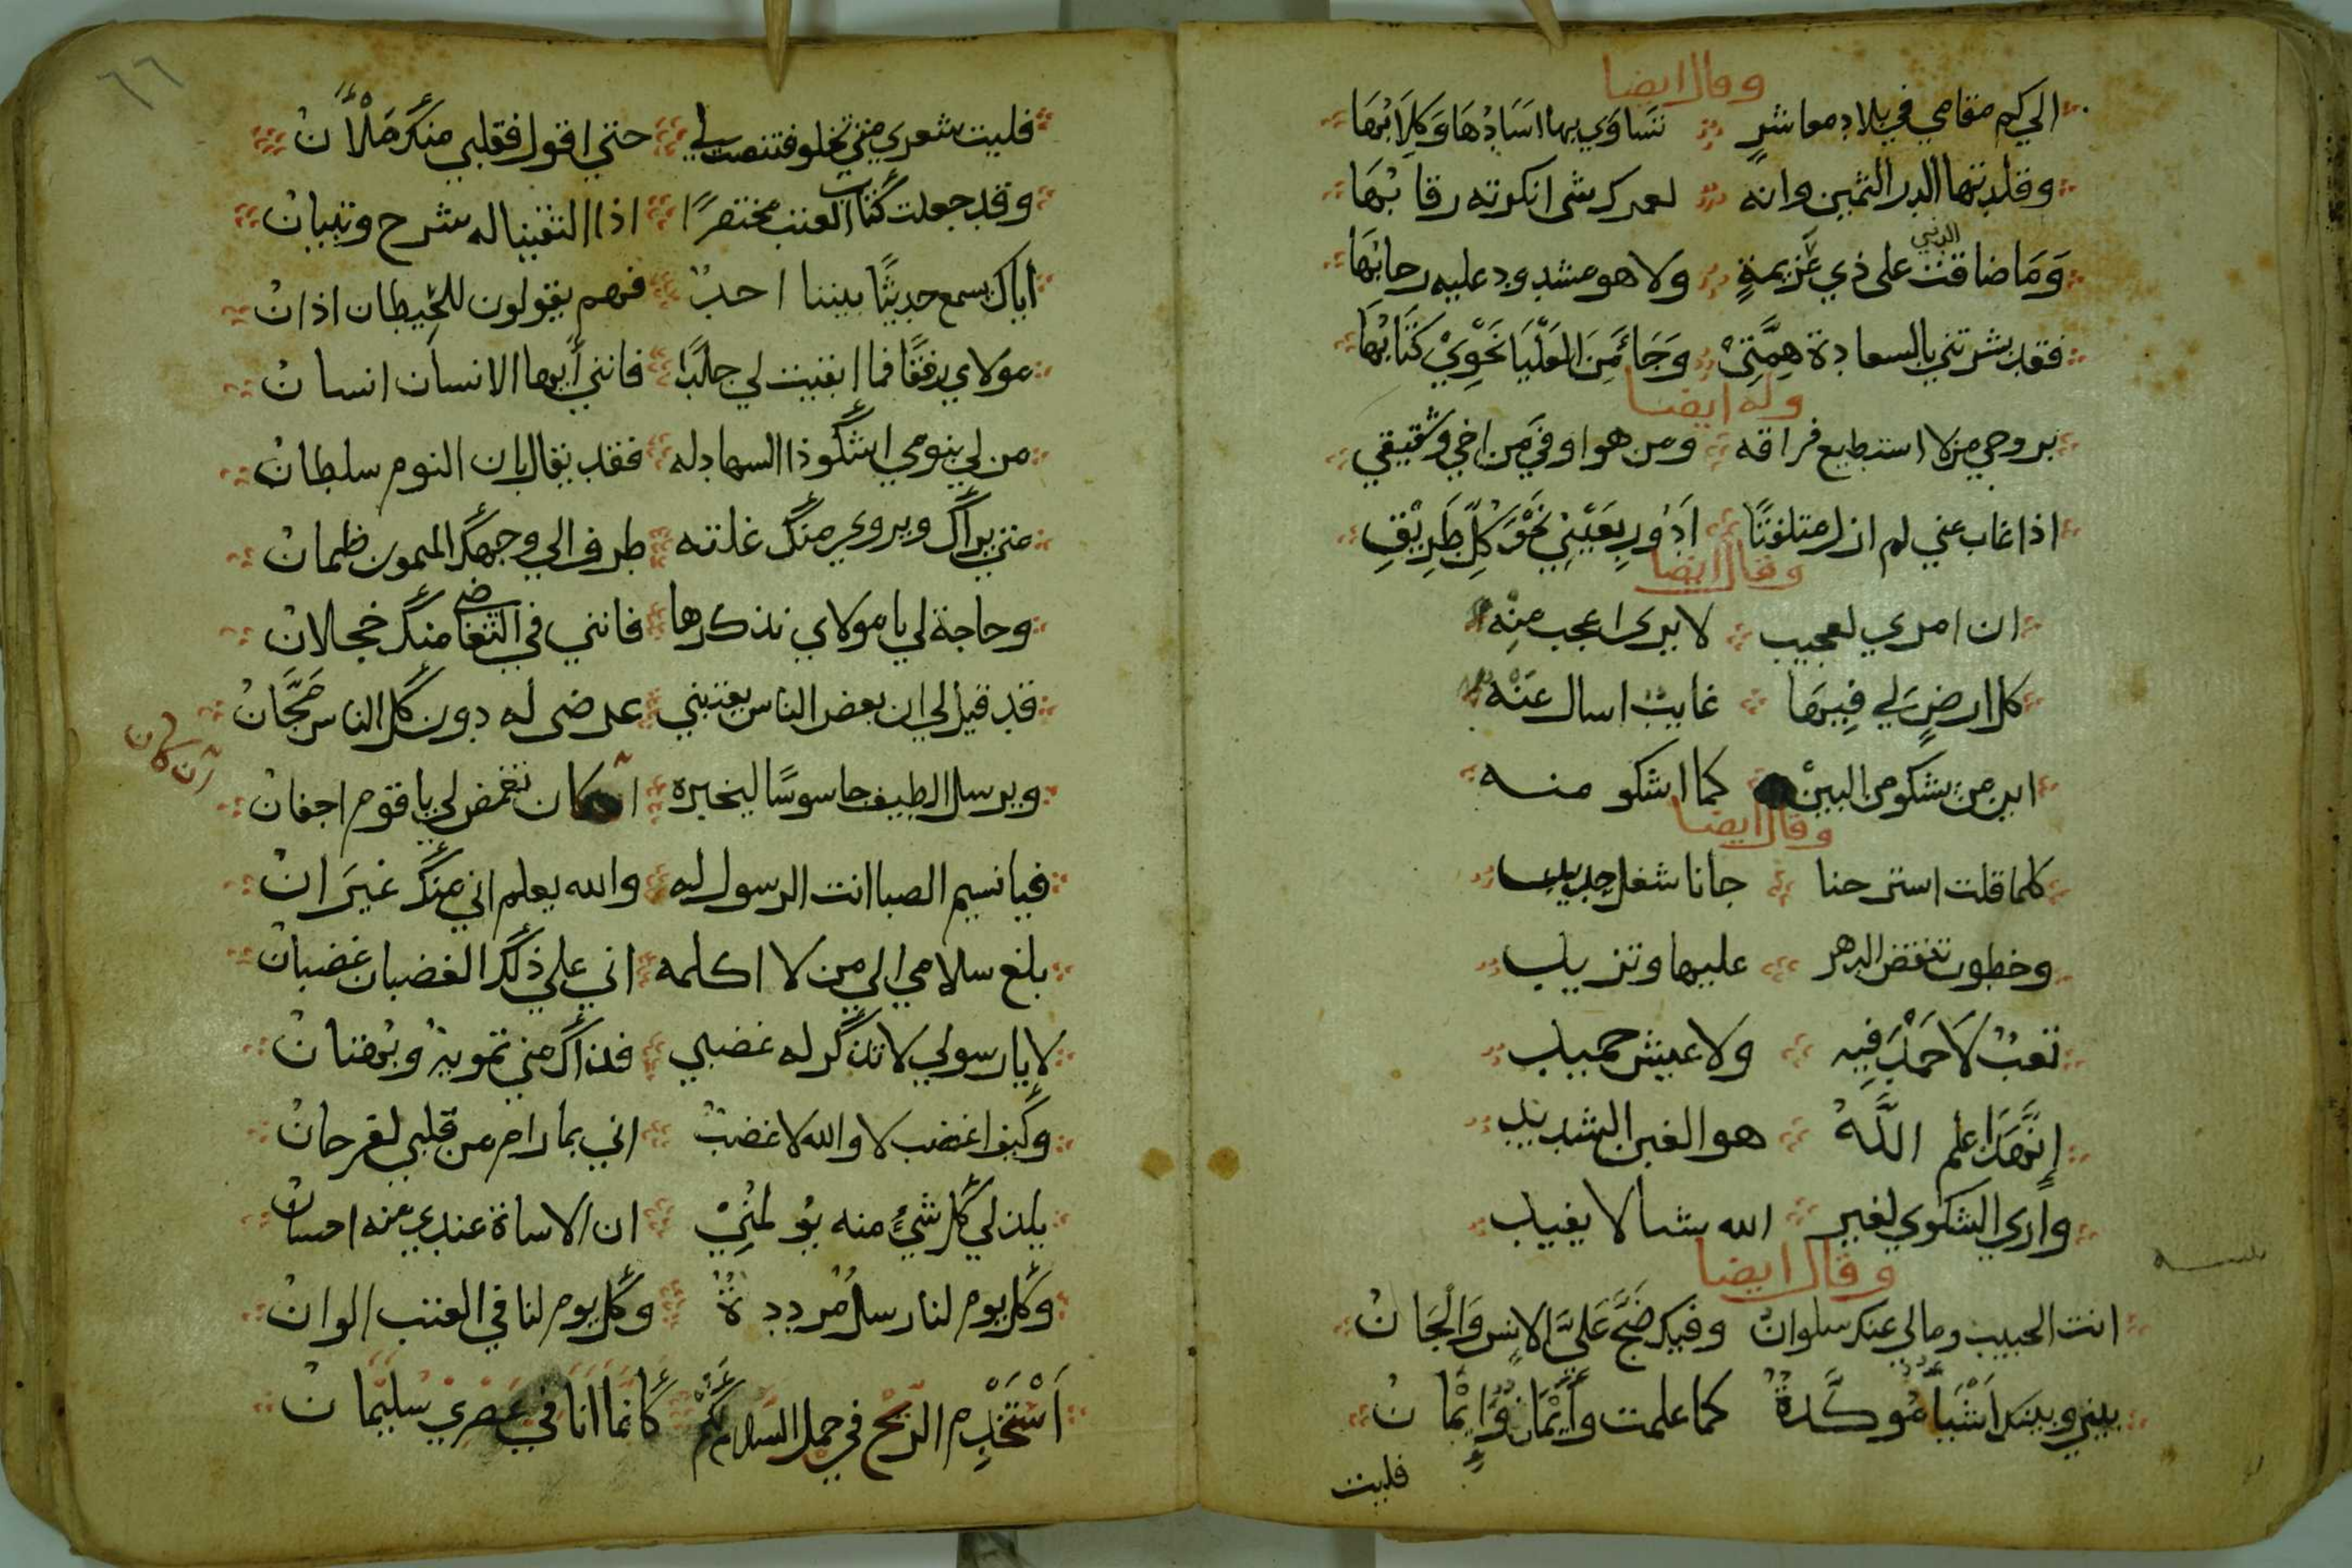 وقال ايضا
الي كم مقامي في بلاد معاشر تساوي بها اسادها وكلابها
وقلدتها الدر الثمين وانه لعمرك شي انكرته رقابها
وما ضاقت الدني على ذي عزيمة ولا هو مشدود عليه رحابها
فقد بشرتني بالسعادة همتي وجاء من العليا نحوي كتابها
وله ايضا
بروحي من لا استطيع فراقه ومن هو اوفي من اخي وشقيقي
اذا غاب عني لم ازل متلفتا ادور بعيني نحو كل طريق
وقال ايضا
ان امري لعجيب لا يرى اعجب منه
كل ارض لي فيها غايب اسال عنه
اين من يشكو من البين كما اشكو منه
وقال ايضا
كلما قلت استرحنا جانا شغل جديد
وخطوب ينقض الدهر عليها وتزيد
تعب لا حمد فيه ولا عيش حميد
ان هذا علم الله هو الغبن الشديد
واري الشكوي لغير الله شيا لا يفيد
وقال ايضا
انت الحبيب ومالي عنك سلوان وفيك ضج علي الانس والجان
بيني وبينك اشيا موكدة كما علمت وأيمان وإيمان
فليت
٦٦
فليت شعري متي تخلو فتنصت لي حتي اقول فقلبي منك ملأن
وقد جعلت كتاب العتب مختصرا اذا التقينا له شرح وتبيان
اياك يسمع حديثا بيننا احد فهم يقولون للحيطان اذان
مولاي رفقا فما ابقيت لي جلدا فانني أيها الانسان انسان
من لي بنومي اشكو ذا السهاد له فقد يقال بان النوم سلطان
متي يراك ويروي منك غلته طرف الي وجهك الميمون ظمان
وحاجة لي يا مولاي نذكرها فانني في التقاضي منك خجلان
قد قيل لي ان بعض الناس يعتبني عرضى له دون كل الناس مجان
ويرسل الطيف جاسوسا ليخبره ان كان تغمض لي يا قوم اجفان
ان كان
فيا نسيم الصبا انت الرسول له والله يعلم اني منك غيران
بلغ سلامي الي من لا اكلمه اني علي ذلك الغضبان غضبان
لا يا رسولي لا تذكر له غضبي فذاك مني تمويه وبهتان
وكيف اغضب لا والله لا غضب اني بما رام من قلبي لفرحان
يلذ لي كل شيء منه يؤلمني ان الاساة عندي منه احسان
وكل يوم لنا رسل مرددة وكل يوم لنا في العتب الوان
أستخدم الريح في حمل السلام لكم كانما انا في عصري سليمان